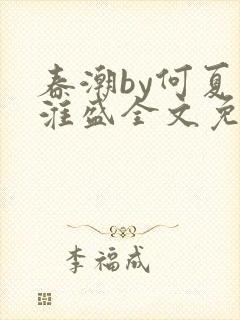 春潮by何夏
淮盛全文免
李福成